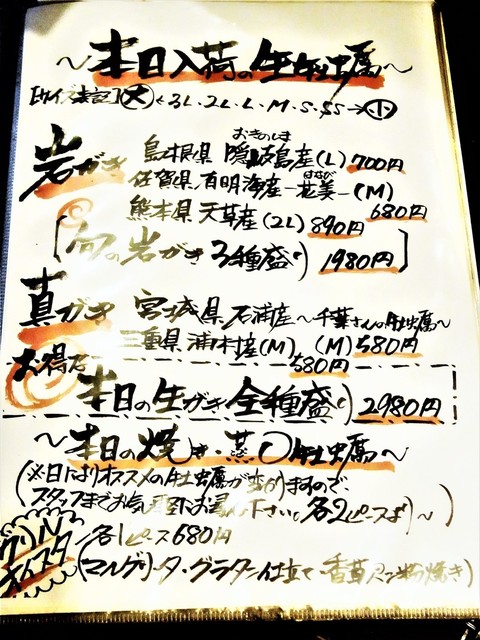 ～本日入荷の生牡蠣～
【サイズ表記】大←3L・2L・L・M・S・SS→小
岩がき 島根県 隠岐島産(L) 700円
おきのしま
佐賀県 有明海産―花美―(M) 680円
はなび
熊本県 天草産(2L) 890円
旬の岩がき3種盛り 1980円
真がき 宮城県 石浦産～千葉さんの牡蠣～ (M) 580円
三重県 浦村産(M) 580円
お得な
本日の生がき全種盛り 2980円
～本日の焼き・蒸し牡蠣～
(※日によりオススメの牡蠣が変わりますので、
スタッフまでお気軽にお尋ね下さい。各2ピースより～)
グリルオイスター 各1ピース680円
(マルゲリータ・グラタン仕立て・香草パン粉焼き)